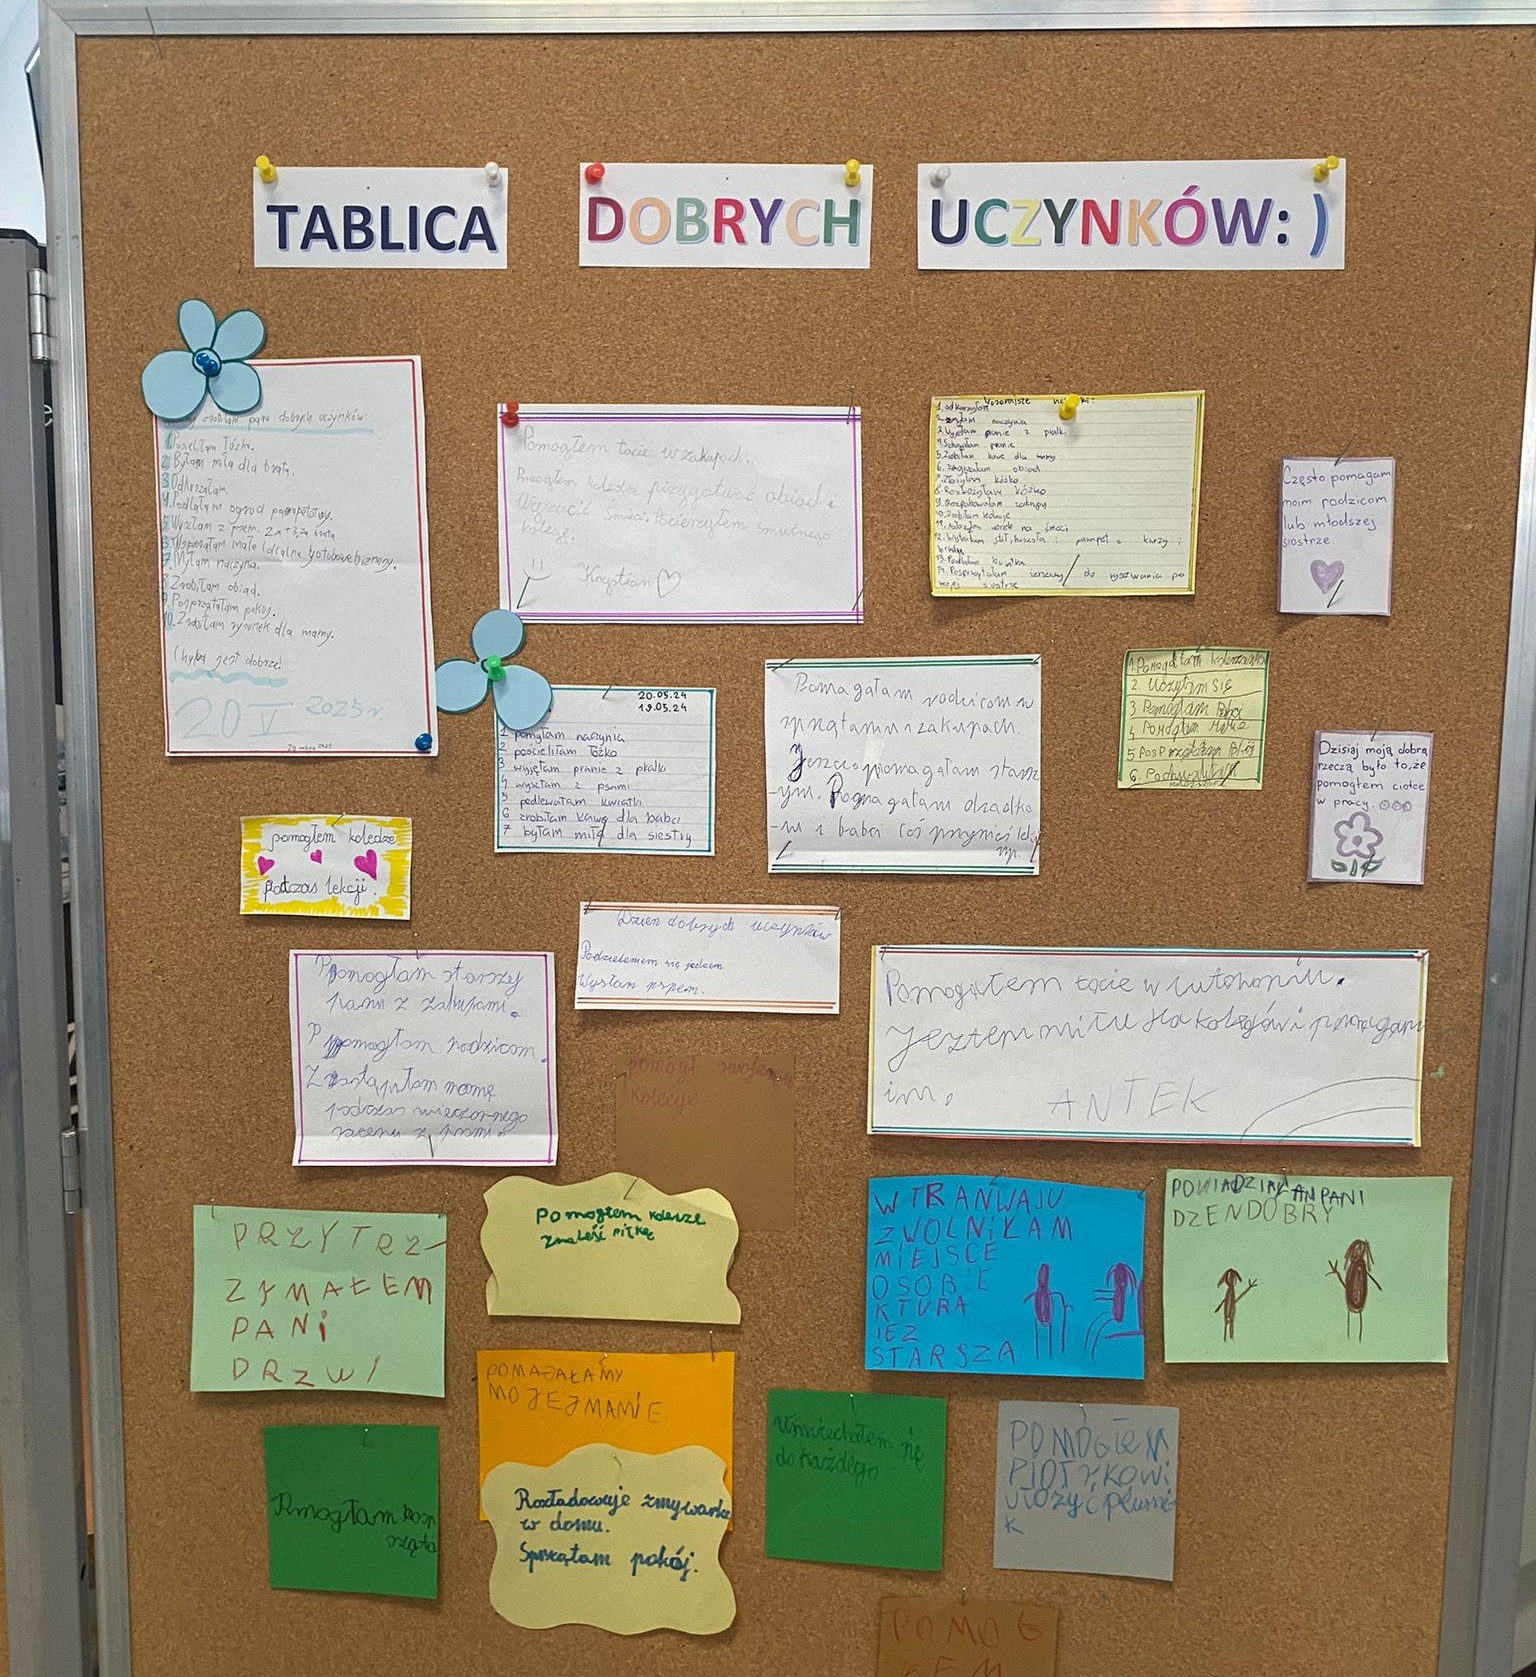 TABLICA DOBRYCH UCZYNKÓW: )
zrobiłam parę dobrych uczynków:
1. Pościeliłam łóżko.
2. Byłam miła dla brata.
3. Odkurzałam.
4. Podlałam ogród
5. Wyszłam z psem.
7. Myłam naczynia.
8. Zrobiłam obiad.
9. Posprzątałam pokój.
10. Zrobiłam rysunek dla mamy.
Chyba jest dobrze!
20 V 2025 r.
Pomogłem tacie w zakupach.
Pomogłem koledze przygotować obiad i
Wyrzucić śmieci. Pocieszyłem smutnego
kolegę.
Krystian
1. odkurzyłam
2. zmyłam naczynia
3. Wyjęłam pranie z pralki
4. Schowałam pranie
5. Zrobiłam kawę dla mamy
6. obiad
7. łóżko
9. Rozpakowałam zakupy
10. Zrobiłam kolację
11. worek na śmieci
do rysowania po
mojej siostrze
Często pomagam
moim rodzicom
lub młodszej
siostrze.
20.05.24
19.05.24
1 pomyłam naczynia
2 pościeliłam łóżko
3 wyjęłam pranie z pralki
4 wyszłam z psami
5 podlewałam kwiatki
6 zrobiłam kawę dla babci
7 byłam miła dla siostry
Pomagałam rodzicom w
sprzątaniu i zakupach.
Jeszcze pomagałam starsz
-ym. Pomagałam dziadko
-wi i babci coś przynieść
np.
1. Pomogłam koleżance
2. Uczyłam się
3 Pomogłam
4 Pomogłam Mamie
5 Posprzątałam
6.
Dzisiaj moją dobrą
rzeczą było to, że
pomogłem ciotce
w pracy.
pomogłem koledze
podczas lekcji.
Dzień dobrych uczynków
Podzieleniem się jedzem
Wysłam psem.
Pomogłam starszej
panu z zakupami.
Pomogłam rodzicom.
Zastąpiłam mamę
podczas wieczornego
spaceru z psami.
Pomogłem tacie w
Jeztem miłu dla kolegów i pomagam
im.
ANTEK
pomogł swojemu
kolecje
PRZYTRZ-
ZYMAŁEM
PANi
DRZWI
Pomogłem koledze
znaleść piłkę
W TRANWAJU
ZWOLNIŁAM
MIEJSCE
OSOBIE
KTURA
IEZ
STARSZA
POWIADZIAŁAM PANI
DZENDOBRY
POMAGAŁAMY
MOJEJ MAMIE
Rozładowuję zmywarkę
w domu.
Sprzątam pokój.
Uśmiechałem się
do każdego
POMOGŁEM
PIOTRKOWI
UŁOZYĆ
K
POMOG
ŁEM